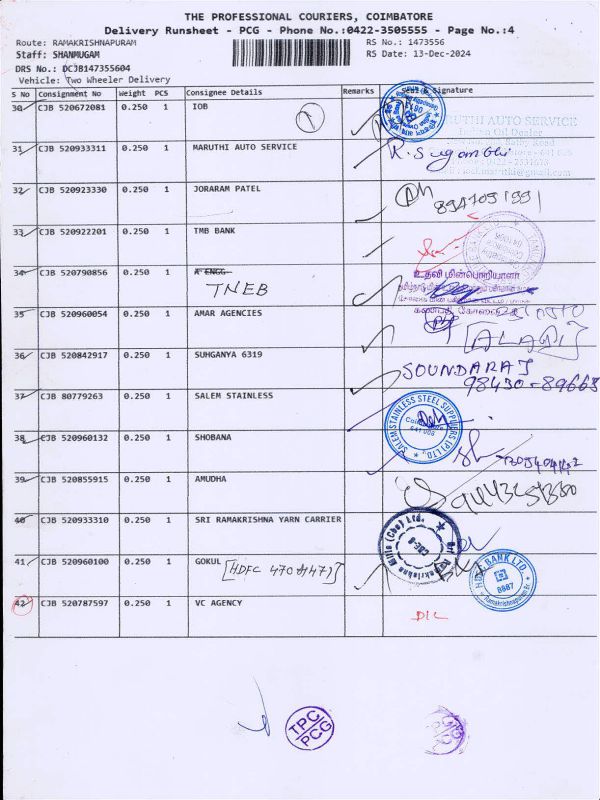 THE PROFESSIONAL COURIERS, COIMBATORE
Delivery Runsheet - PCG - Phone No.:0422-3505555 - Page No.:4
Route: RAMAKRISHNAPURAM
RS No.: 1473556
Staff: SHANMUGAM
RS Date: 13-Dec-2024
DRS No.: DCJB147355604
Vehicle: Two Wheeler Delivery
S No Consignment No Weight PCS Consignee Details Remarks Seal & Signature
30 CJB 520672081 0.250 1 IOB
MARUTHI AUTO SERVICE
Indian Oil Dealer
31 CJB 520933311 0.250 1 MARUTHI AUTO SERVICE R.Sugambhi
32 CJB 520923330 0.250 1 JORARAM PATEL
33 CJB 520922201 0.250 1 TMB BANK
34 CJB 520790856 0.250 1 A ENGG
TNEB
உதவி மின்பொறியாளர்
35 CJB 520960054 0.250 1 AMAR AGENCIES
[ALAGI]
36 CJB 520842917 0.250 1 SUHGANYA 6319 SOUNDARAJ
98430-89663
37 CJB 80779263 0.250 1 SALEM STAINLESS
SALEM STAINLESS STEEL SUPPLIERS (P) LTD.,
Coimbatore
641 009
38 CJB 520960132 0.250 1 SHOBANA
39 CJB 520855915 0.250 1 AMUDHA
40 CJB 520933310 0.250 1 SRI RAMAKRISHNA YARN CARRIER
Sri Ramakrishna Mills (Cbe) Ltd.
CBE-6
41 CJB 520960100 0.250 1 GOKUL [HDFC 470 471]
HDFC BANK LTD.
Ramakrishnapuram Br
42 CJB 520787597 0.250 1 VC AGENCY DIL
TPC
PCG